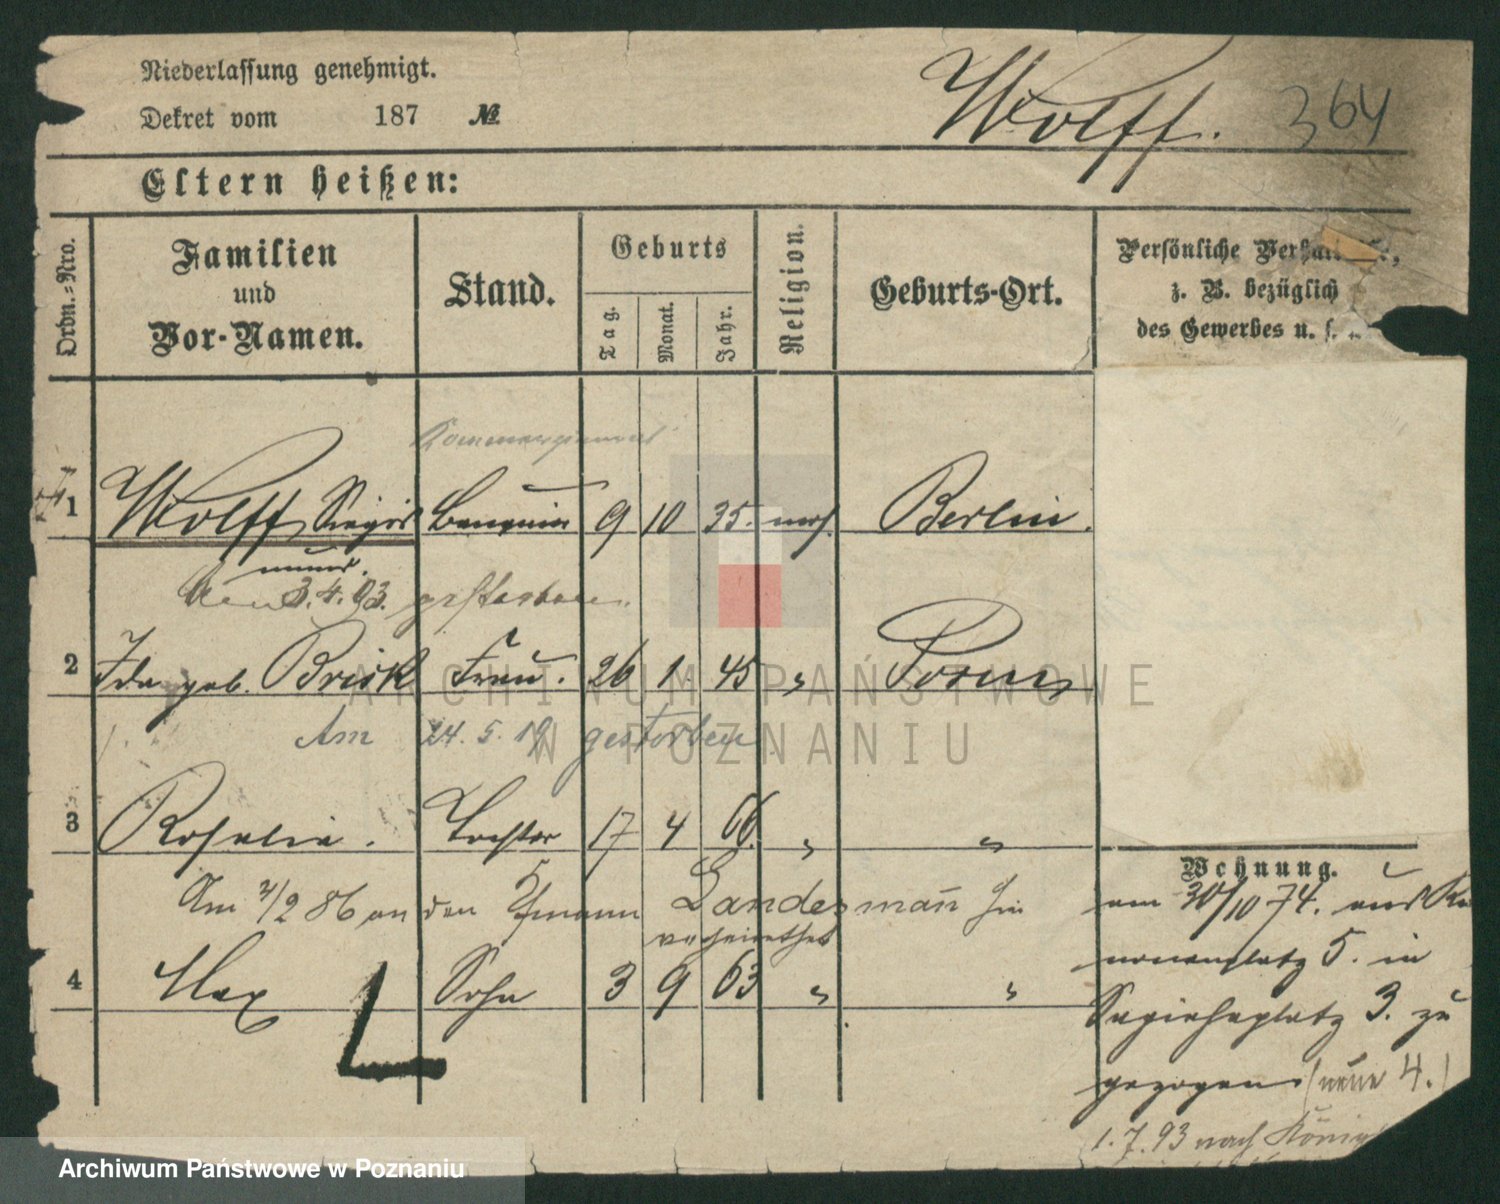 Niederlassung genehmigt.
Dekret vom 187 №
Wolff. 364
Eltern heißen:
Ordn.-Nro.
Familien und Vor-Namen.
Stand.
Geburts
Tag. Monat. Jahr.
Religion.
Geburts-Ort.
Persönliche
z. B. bezüglich
des Gewerbes u. s.
1 Wolff, Siegis Banquier 9 10 35. mos. Berlin.
mund.
den 3.4.93. gestorben.
2 Ida geb. Brisk Frau. 26 1. 45 " Posen
Am 24. 5. 19 gestorben.
3 Rosalie. Tochter 17 4 66. " "
Am 2/2 86 an den Landesmann
verheirathet
4 Max Sohn 3 9 63 " "
L
Wohnung.
am 30/10 74. aus Ka
nonenplatz 5. in
Sapiehaplatz 3. zu
gezogen. (neue 4.)
1.7.93 nach König
ARCHIWUM PAŃSTWOWE
W POZNANIU
Archiwum Państwowe w Poznaniu